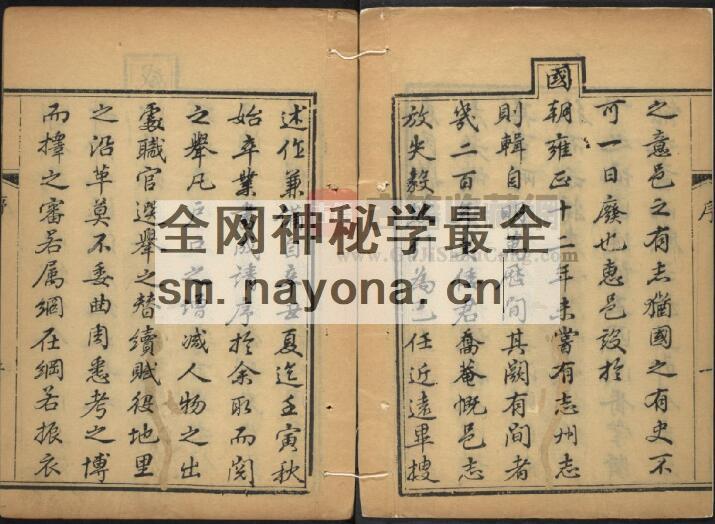 之意邑之有志猶國之有史不
可一日廢也惠邑設於
國朝雍正十二年未嘗有志州志
則輯自明 間其闕有間者
幾二百 君喬菴慨邑志
放失毅 為己任近遠畢搜
序
一
述作兼 自辛 夏迄壬寅秋
始卒業 成請序於余取而閱
之舉凡戶口之增減人物之出
處職官選舉之替續賦役地里
之沿革莫不委曲周悉考之博
而擇之審若属網在綱若振衣
序
全网神秘学最全
sm.nayona.cn